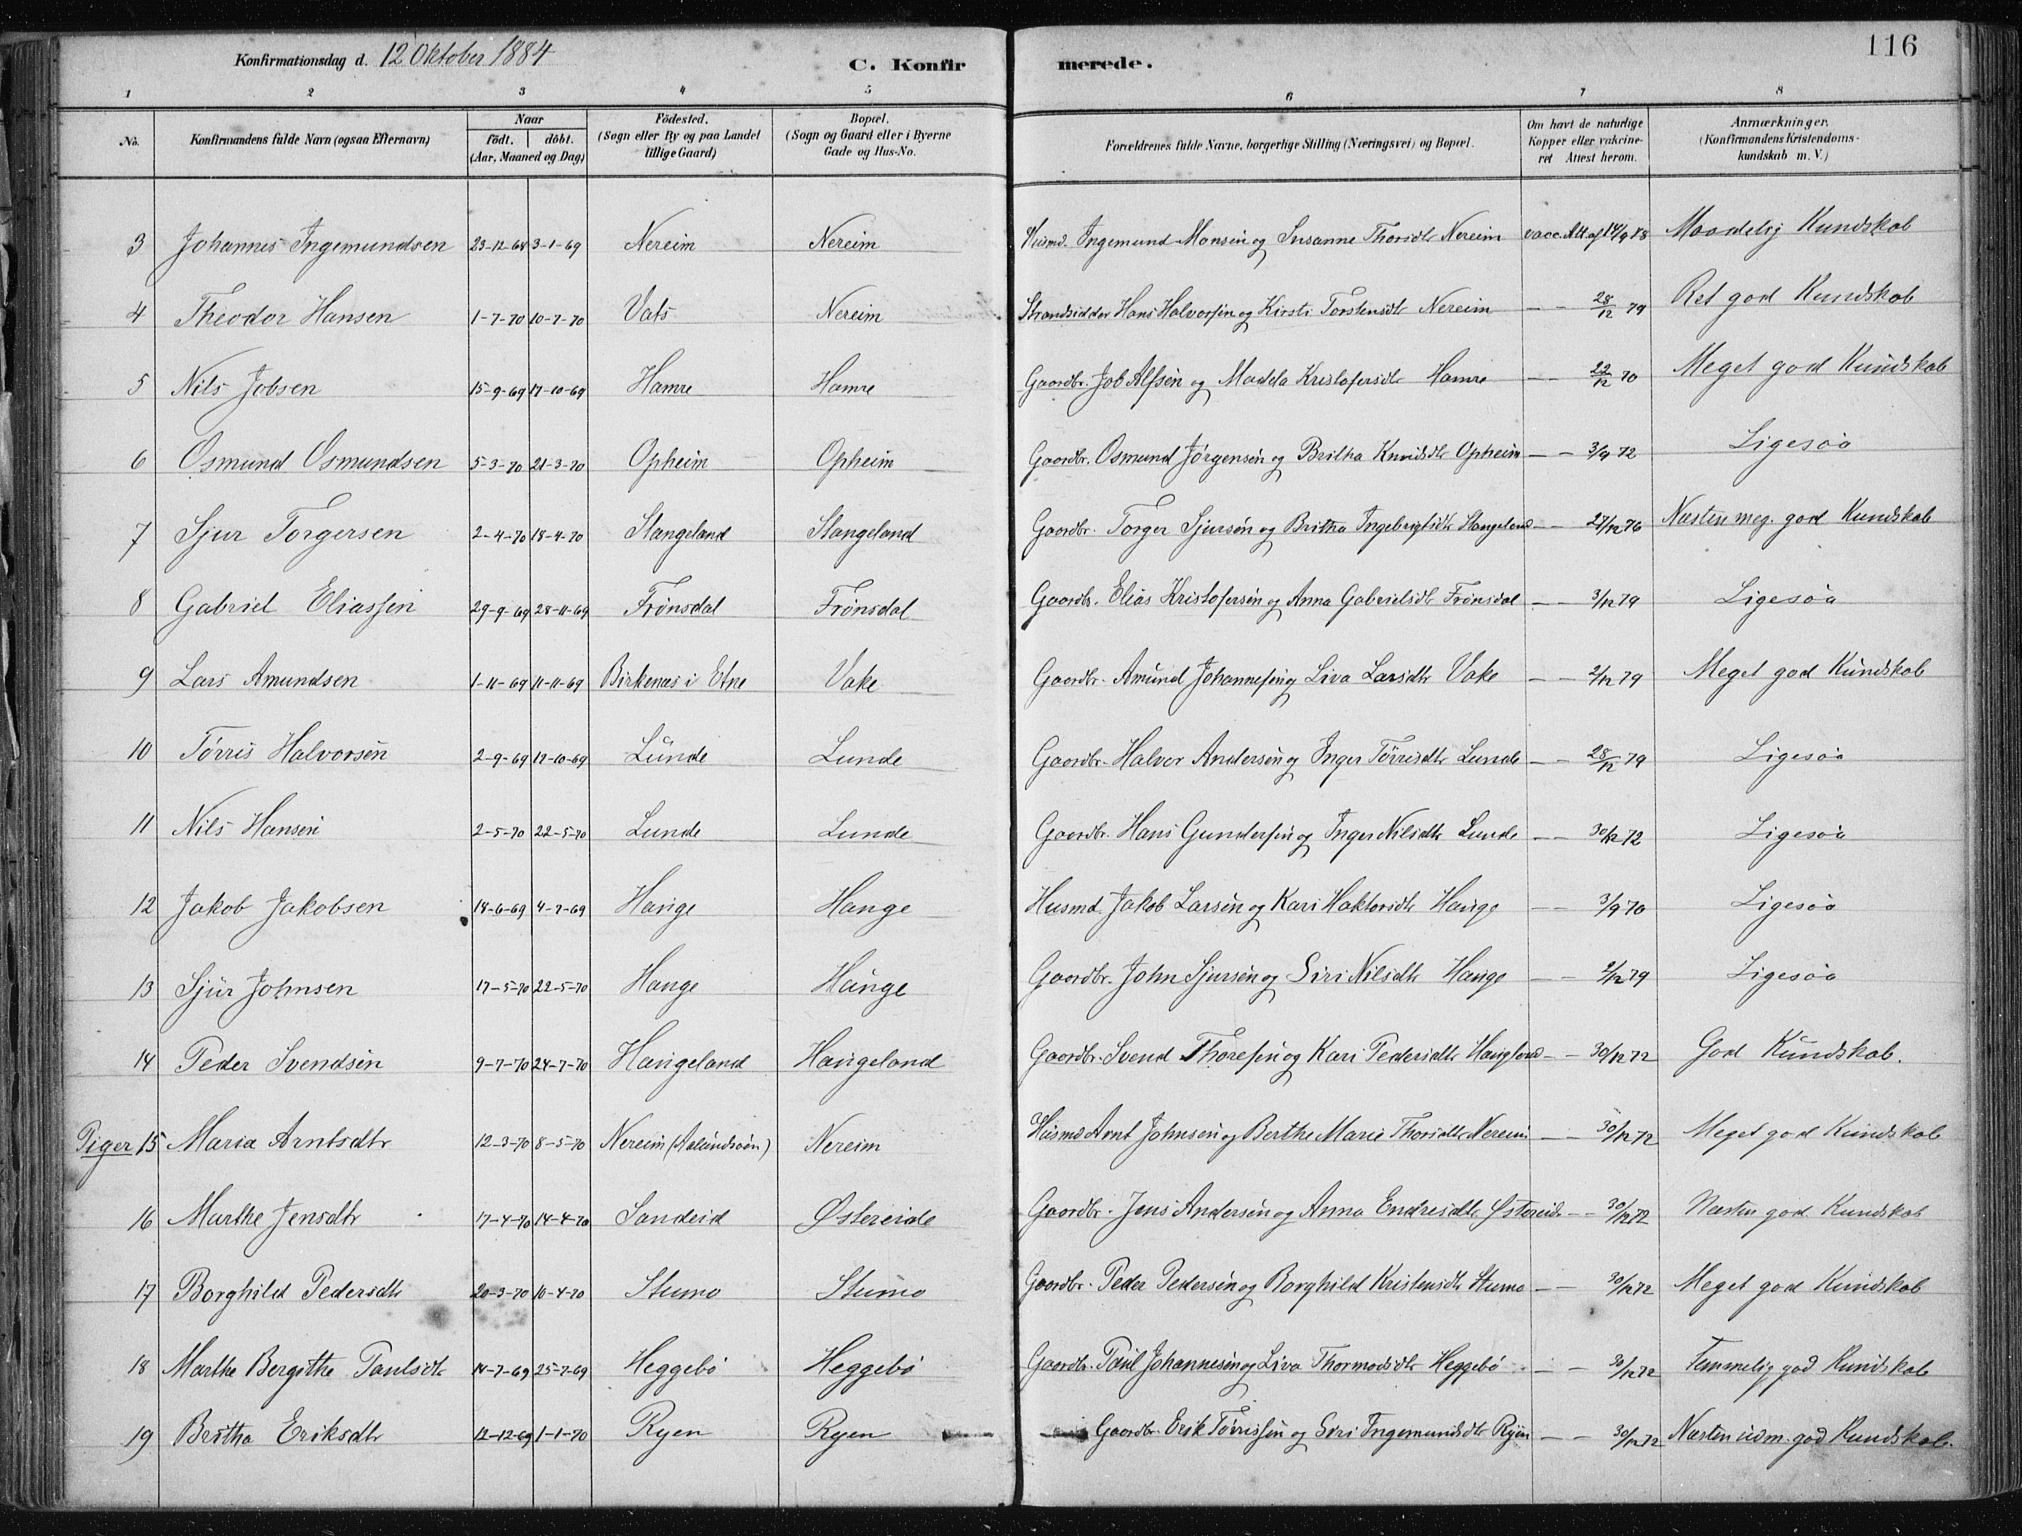 116
Konfirmationsdag d. 12 Oktober 1884 C. Konfir merede.
1 2 3 4 5 6 7 8
No. Konfirmandens fulde Navn (ogsaa Efternavn) Naar født. døbt. (Aar, Maaned og Dag) Fødested. (Sogn eller By og paa Landet tillige Gaard) Bopæl. (Sogn og Gaard eller i Byerne Gade og Hus-No. Forældrenes fulde Navne, borgerlige Stilling (Næringsvei) og Bopæl. Om havt de naturlige Kopper eller vakcineret Attest herom. Anmærkninger. (Konfirmandens Kristendomskundskab m. V.)
3 Johannes Ingemundsen 23-12-68 3-1-69 Nereim Nereim Husmd. Ingemund Monsen og Susanne Thorsdtr Nereim vacc. Att. af Maadelig Kundskab
4 Theodor Hansen 1-7-70 10-7-70 Vats Nereim Strandsidder Hans Halvorsen og Kirsti Torstensdtr Nereim — — 28/12 79 Ret god Kundskab
5 Nils Jobsen 15-9-69 17-10-69 Hamre Hamre Gaardbr. Job Alfsen og Madela Kristofersdtr Hamre — — 22/12 70 Meget god Kundskab
6 Osmund Osmundsen 5-3-70 21-3-70 Opheim Opheim Gaardbr. Osmund Jørgensen og Britha Knudsdtr Opheim — — 3/9 72 Ligesaa
7 Sjur Torgersen 2-4-70 18-4-70 Stangeland Stangeland Gaardbr. Torger Sjursen og Britha Ingebrigtsdtr Stangeland — — 27/12 76 Næsten meg. god Kundskab
8 Gabriel Eliassen 29-9-69 28-11-69 Frønsdal Frønsdal Gaardbr. Elias Kristofersen og Anna Gabrielsdtr Frønsdal — — 3/12 79 Ligesaa
9 Lars Amundsen 1-11-69 11-11-69 Birkenæs i Etne Vake Gaardbr. Amund Johannesen og Liva Larsdtr Vake — — 2/12 79 Meget god Kundskab
10 Tørris Halvorsen 2-9-69 17-10-69 Lunde Lunde Gaardbr. Halvor Andersen og Inger Tørrisdtr Lunde — — 28/12 79 Ligesaa
11 Nils Hansen 2-5-70 22-5-70 Lunde Lunde Gaardbr. Hans Gundersen og Inger Nilsdtr Lunde — — 30/12 72 Ligesaa
12 Jakob Jakobsen 18-6-69 4-7-69 Hauge Hauge Husmd. Jakob Larsen og Kari Haktorsdtr Hauge — — 3/9 70 Ligesaa
13 Sjur Johnsen 17-5-70 22-5-70 Hauge Hauge Gaardbr. John Sjursen og Siri Nilsdtr Hauge — — 2/12 79 Ligesaa
14 Peder Svendsen 9-7-70 24-7-70 Haugeland Haugeland Gaardbr. Svend Thoresen og Kari Pedersdtr Haugland — — 30/12 72 God Kundskab.
Piger 15 Maria Arntsdtr 12-3-70 8-5-70 Nereim Nereim Husmd Arnt Johnsen og Berthe Marie Thorsdtr Nereim — — 30/12 72 Meget god Kundskab
16 Marthe Jensdtr 17-4-70 14-4-70 Sandeid Østereide Gaardbr. Jens Andersen og Anna Endresdtr Østereide — — 30/12 72 Næsten god Kundskab
17 Borghild Pedersdtr 20-3-70 10-4-70 Stumo Stumo Gaardbr. Peder Pedersen og Borghild Kristensdtr Stumo — — 30/12 72 Meget god Kundskab
18 Marthe Bergithe Paulsdtr 14-7-69 25-7-69 Heggebø Heggebø Gaardbr. Paul Johannesen og Liva Thormodsdtr Heggebø — — 30/12 72 Temmelig god Kundskab
19 Britha Eriksdtr 12-12-69 1-1-70 Ryen Ryen Gaardbr. Erik Tørrissen og Siri Ingemundsdtr Ryen — — 30/12 72 Næsten udm. god Kundskab.